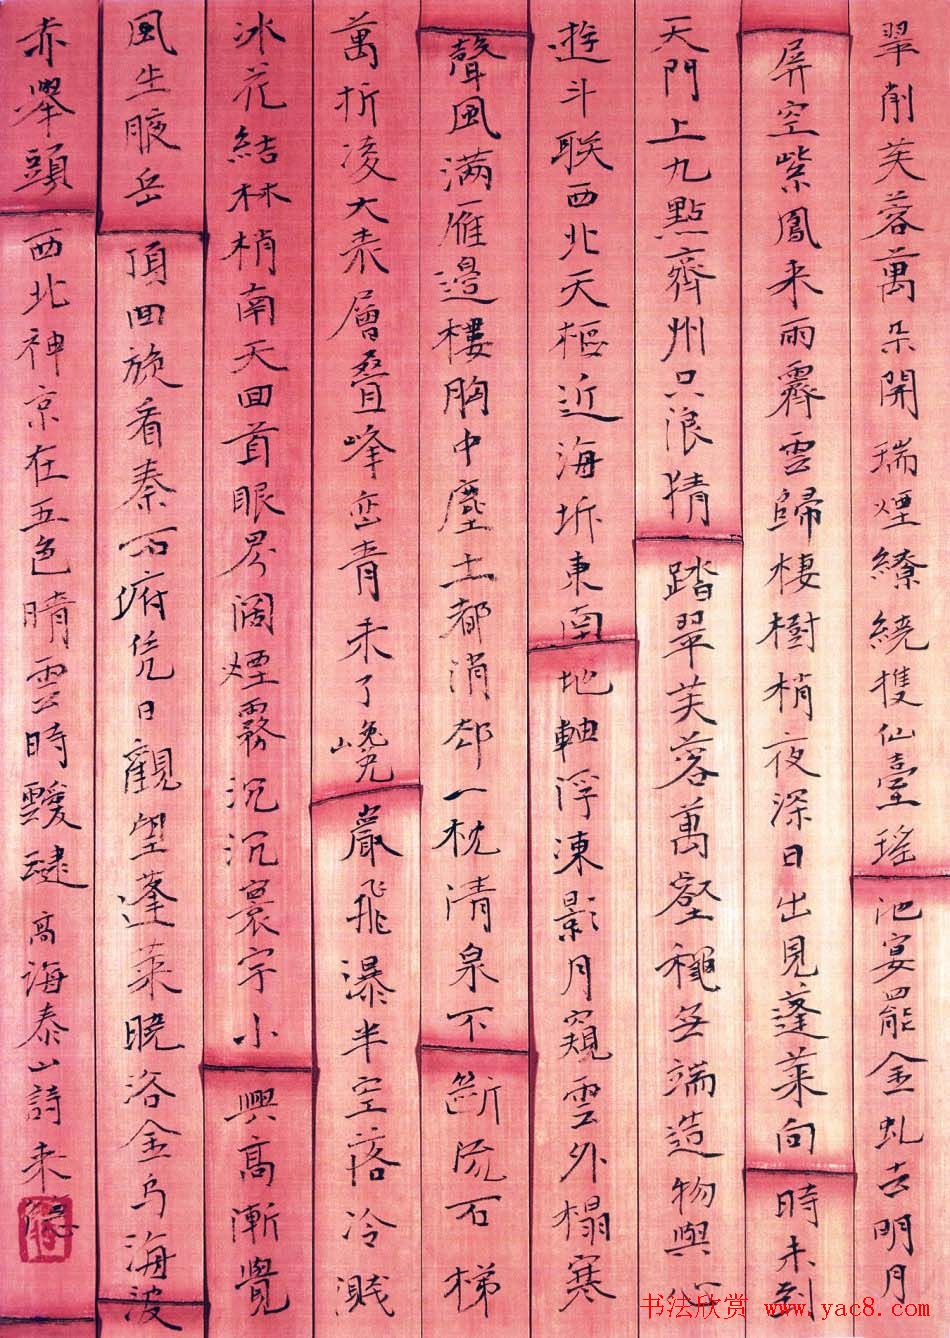 翠削芙蓉萬朵開瑞煙繚繞擭仙臺瑤池宴罷金虬去明月
屏空紫鳳来雨霽雲歸棲樹梢夜深日出見蓬萊向時未到
天門上九點齊州只浪猜踏翠芙蓉萬壑穐無端造物與心
遊斗联西北天樞近海坼東南地軸浮凍影月窺雲外榻寒
聲風满雁邊樓胸中塵土都消却一枕清泉不斷流石梯
萬折凌大表層叠峰峦青未了巉巖飛瀑半空落冷濺
冰花結林梢南天回首眼界阔煙霧沉沉寰宇小興高漸覺
風生腋岳頂回旋看秦石府凭日觀望蓬萊曉浴金乌海波
赤舉頭西北神京在五色晴雲時靉靆高海泰山詩来德
书法欣赏 www.yac8.com